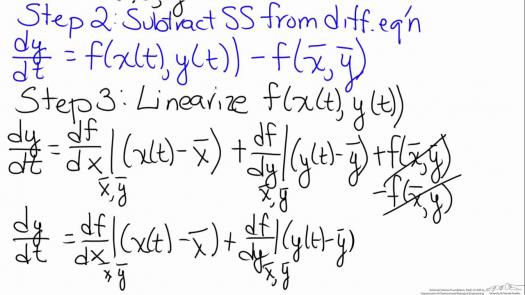 Step 2: Subtract SS from diff. eq'n
dy/dt = f(x(t), y(t)) - f(x̄, ȳ)
Step 3: Linearize f(x(t), y(t))
dy/dt = df/dx|x̄,ȳ (x(t) - x̄) + df/dy|x̄,ȳ (y(t) - ȳ) + f(x̄, ȳ)
- f(x̄, ȳ)
dy/dt = df/dx|x̄,ȳ (x(t) - x̄) + df/dy|x̄,ȳ (y(t) - ȳ)